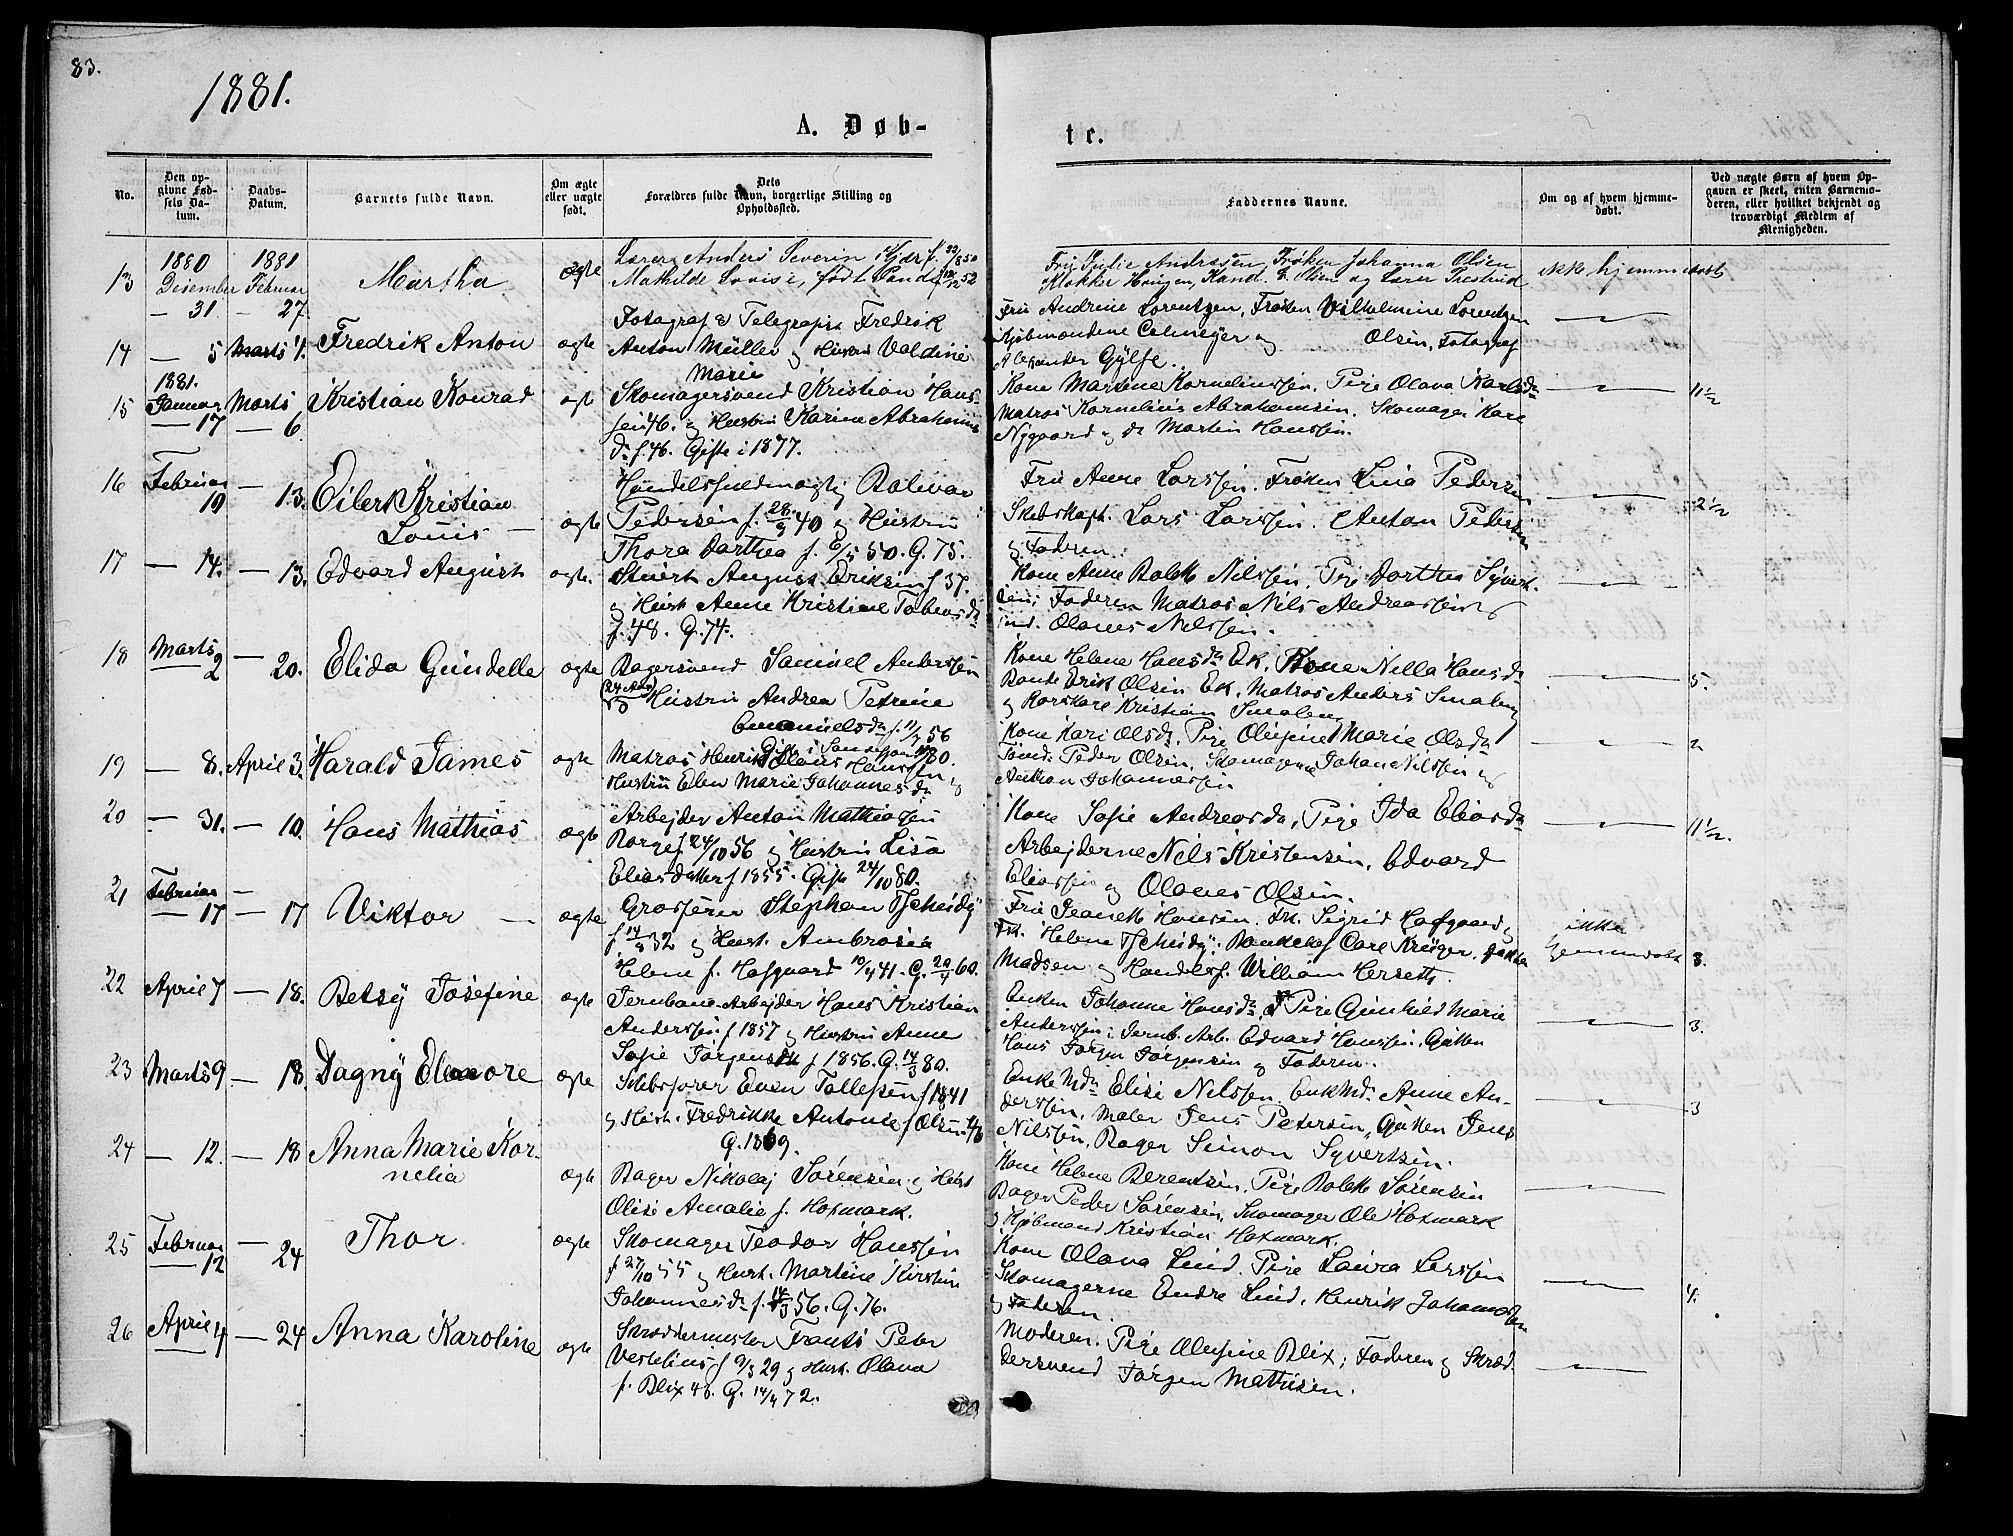 83.
1881.
A. Døb-
te.
No.
Den op-
givne Fød-
sels Da-
tum.
Daabs-
Datum.
Barnets fulde Navn.
Om ægte
eller uægte
født.
Dets
Forældres fulde Navn, borgerlige Stilling og
Opholdssted.
Faddernes Navne.
Om og af hvem hjemme-
døbt.
Ved uægte Børn af hvem Op-
gaven er skeet, enten Barnemo-
deren, eller hvilket bekjendt og
troværdigt Medlem af
Menigheden.
13
1880
Desember
— 31
1881
Februar
— 27.
Martha
ægte
Lærer Anders Severin Kjær f. 22/8 50
Mathilde Lovise, født
Frü Julie Andresen Frøken Johanna Olsen
Klokker Kand. E. Olsen og Lærer
ikke hjemmedøbt
14
— 5
Marts 4.
Fredrik Anton
ægte
Fotograf & Telegrafist Fredrik
Anton Müller og Hustru Valdine
Marie
Frü Andrine Lorentzen, Frøken Vilhelmine Lorentzen
Kjøbmændene og Olsen, Fotograf
Alexander Gylfe.
15
1881.
Januar
— 17
Marts
— 6.
Kristian Konrad
ægte
Skomagersvend Kristian Hans-
sen 46. og Hustru Karine Abrahams
Dr f. 46. Gifte i 1877.
Kone Martine Kornelinssen. Pige Olava Karlsdr
Matros Kornelius Abrahamsen. Skomager Karl
Nygaard og do Martin Hanssen.
11 1/2
16
Februar
19
— 13.
Eilert Kristian
Louis —
ægte
Handelsfuldmægtig Bolivar
Pedersen f. 28/9 40 og Hustru
Thora Dorthea f. 6/5 50. G. 75.
Frü Anne Larssen. Frøken Lina Pedersen
Skibskapt. Lars Larssen. Anton Pedersen
og Faderen.
2 1/2
17
— 14.
— 13.
Edvard August
ægte.
Stuert August Eriksen f 37.
og Hust. Anne Kristine Tobiasdr
f. 48. G. 74.
Kone Anne Bolette Nilssen. Pige Dorthea Syvert-
sen; Faderen Matros Nils Andreassen og
Olaves Nilssen.
18
Marts
2
— 20.
Elida Gundelle
ægte
Bagersvend Samuel Anderssen
(24 Aar) Hustru Andrea Petrine
Emanuelsdr f. 11/7 56
Kone Helene Hansdr Ek, Kone Nilla Hansdr
Bonde Erik Olsen Ek, Matros Anders Smaberg
og Kristian Smaberg
5.
19
— 8.
April 3.
Harald James
ægte
Matros Henrik Hanssen og
Hustru Elen Marie Johannesdr
Kone Kari Olsdr. Pige Olufine Marie Olsdr
Tømd. Peder Olsen. Skomagerne Johan Nilssen og
Anthon Johannessen
2
20
— 31.
— 10.
Hans Mathias
ægte
Arbejder Anton Mathiassen
Borge f. 24/10 56 og Hustru Lisa
Eliasdatter f 1855. Gift 24/10 80.
Kone Sofie Andreasdr, Pige Ida Eliasdr
Arbejderne Nils Kristensen, Edvard
Eliassen og Olaves Olsen.
11 1/2.
21
Februar
— 17
— 17
Viktor —
ægte
Grosserer Stephan Tscheidy
f 14/8 32 og Hust. Ambrosia
Helene f. Hofgaard 10/4 41. G. 29/4 60.
Frü Jeanette Hansen. Frk. Sigrid Hofgaard og
Frk. Helene Tscheidy. Bankchef Carl Krüger,
Madsen og Handelsf. William Hersett.
ikke
hjemmedøbt
3.
22
April 7
— 18.
Betsy Josefine
ægte
Jernbane-Arbejder Hans Kristian
Anderssen f 1857 og Hustru Anne
Sofie Jørgensdr f 1856. G. 14/3 80.
Enken Johanne Hansdr, Pige Gunhild Marie
Anderssen; Jernb. Arb. Edvard Hanssen. Gutten
Hans Jørgen Jørgensen og Faderen.
3.
23
Marts 9
— 18.
Dagny Elenore
ægte
Skibsfører Even Tollefsen f 1841
og Hust. Fredrikke Antonie f Olsen 46
G. 1869.
Enke Md. Elise Nilssen. Enk Md. Anne An-
derssen. Maler Jens Petersen, Gutten Jens
Nilssen, Bager Simon Syvertsen.
3
24
— 12.
— 18
Anna Marie Kor-
nelia
ægte
Bager Nikolaj Sørensen og Hust
Olise Amalie f. Hoxmark.
Kone Helene Berentsen, Pige Bolette Sørensen
Bager Peder Sørensen, Skomager Ole Hoxmark
og Kjøbmand Kristian Hoxmark.
25
Februar
12
— 24
Thor
ægte
Skomager Teodor Hanssen
f 27/10 55 og Hust. Martine Kirstine
Johannesdr f. 14/3 56. G. 76.
Kone Olava Lind. Pige Laura Larssen
Skomagerne Endre Lind, Henrik Johannessen
og Faderen.
4.
26
April 4
— 24
Anna Karoline
ægte
Skræddermester Frants Peter
Vestelius f 9/3 29 og Hust. Olava
f. Blix 48. G. 14/4 72.
Moderen. Pige Olufine Blix; Faderen og Skræd-
dersvend Jørgen Mathisen.